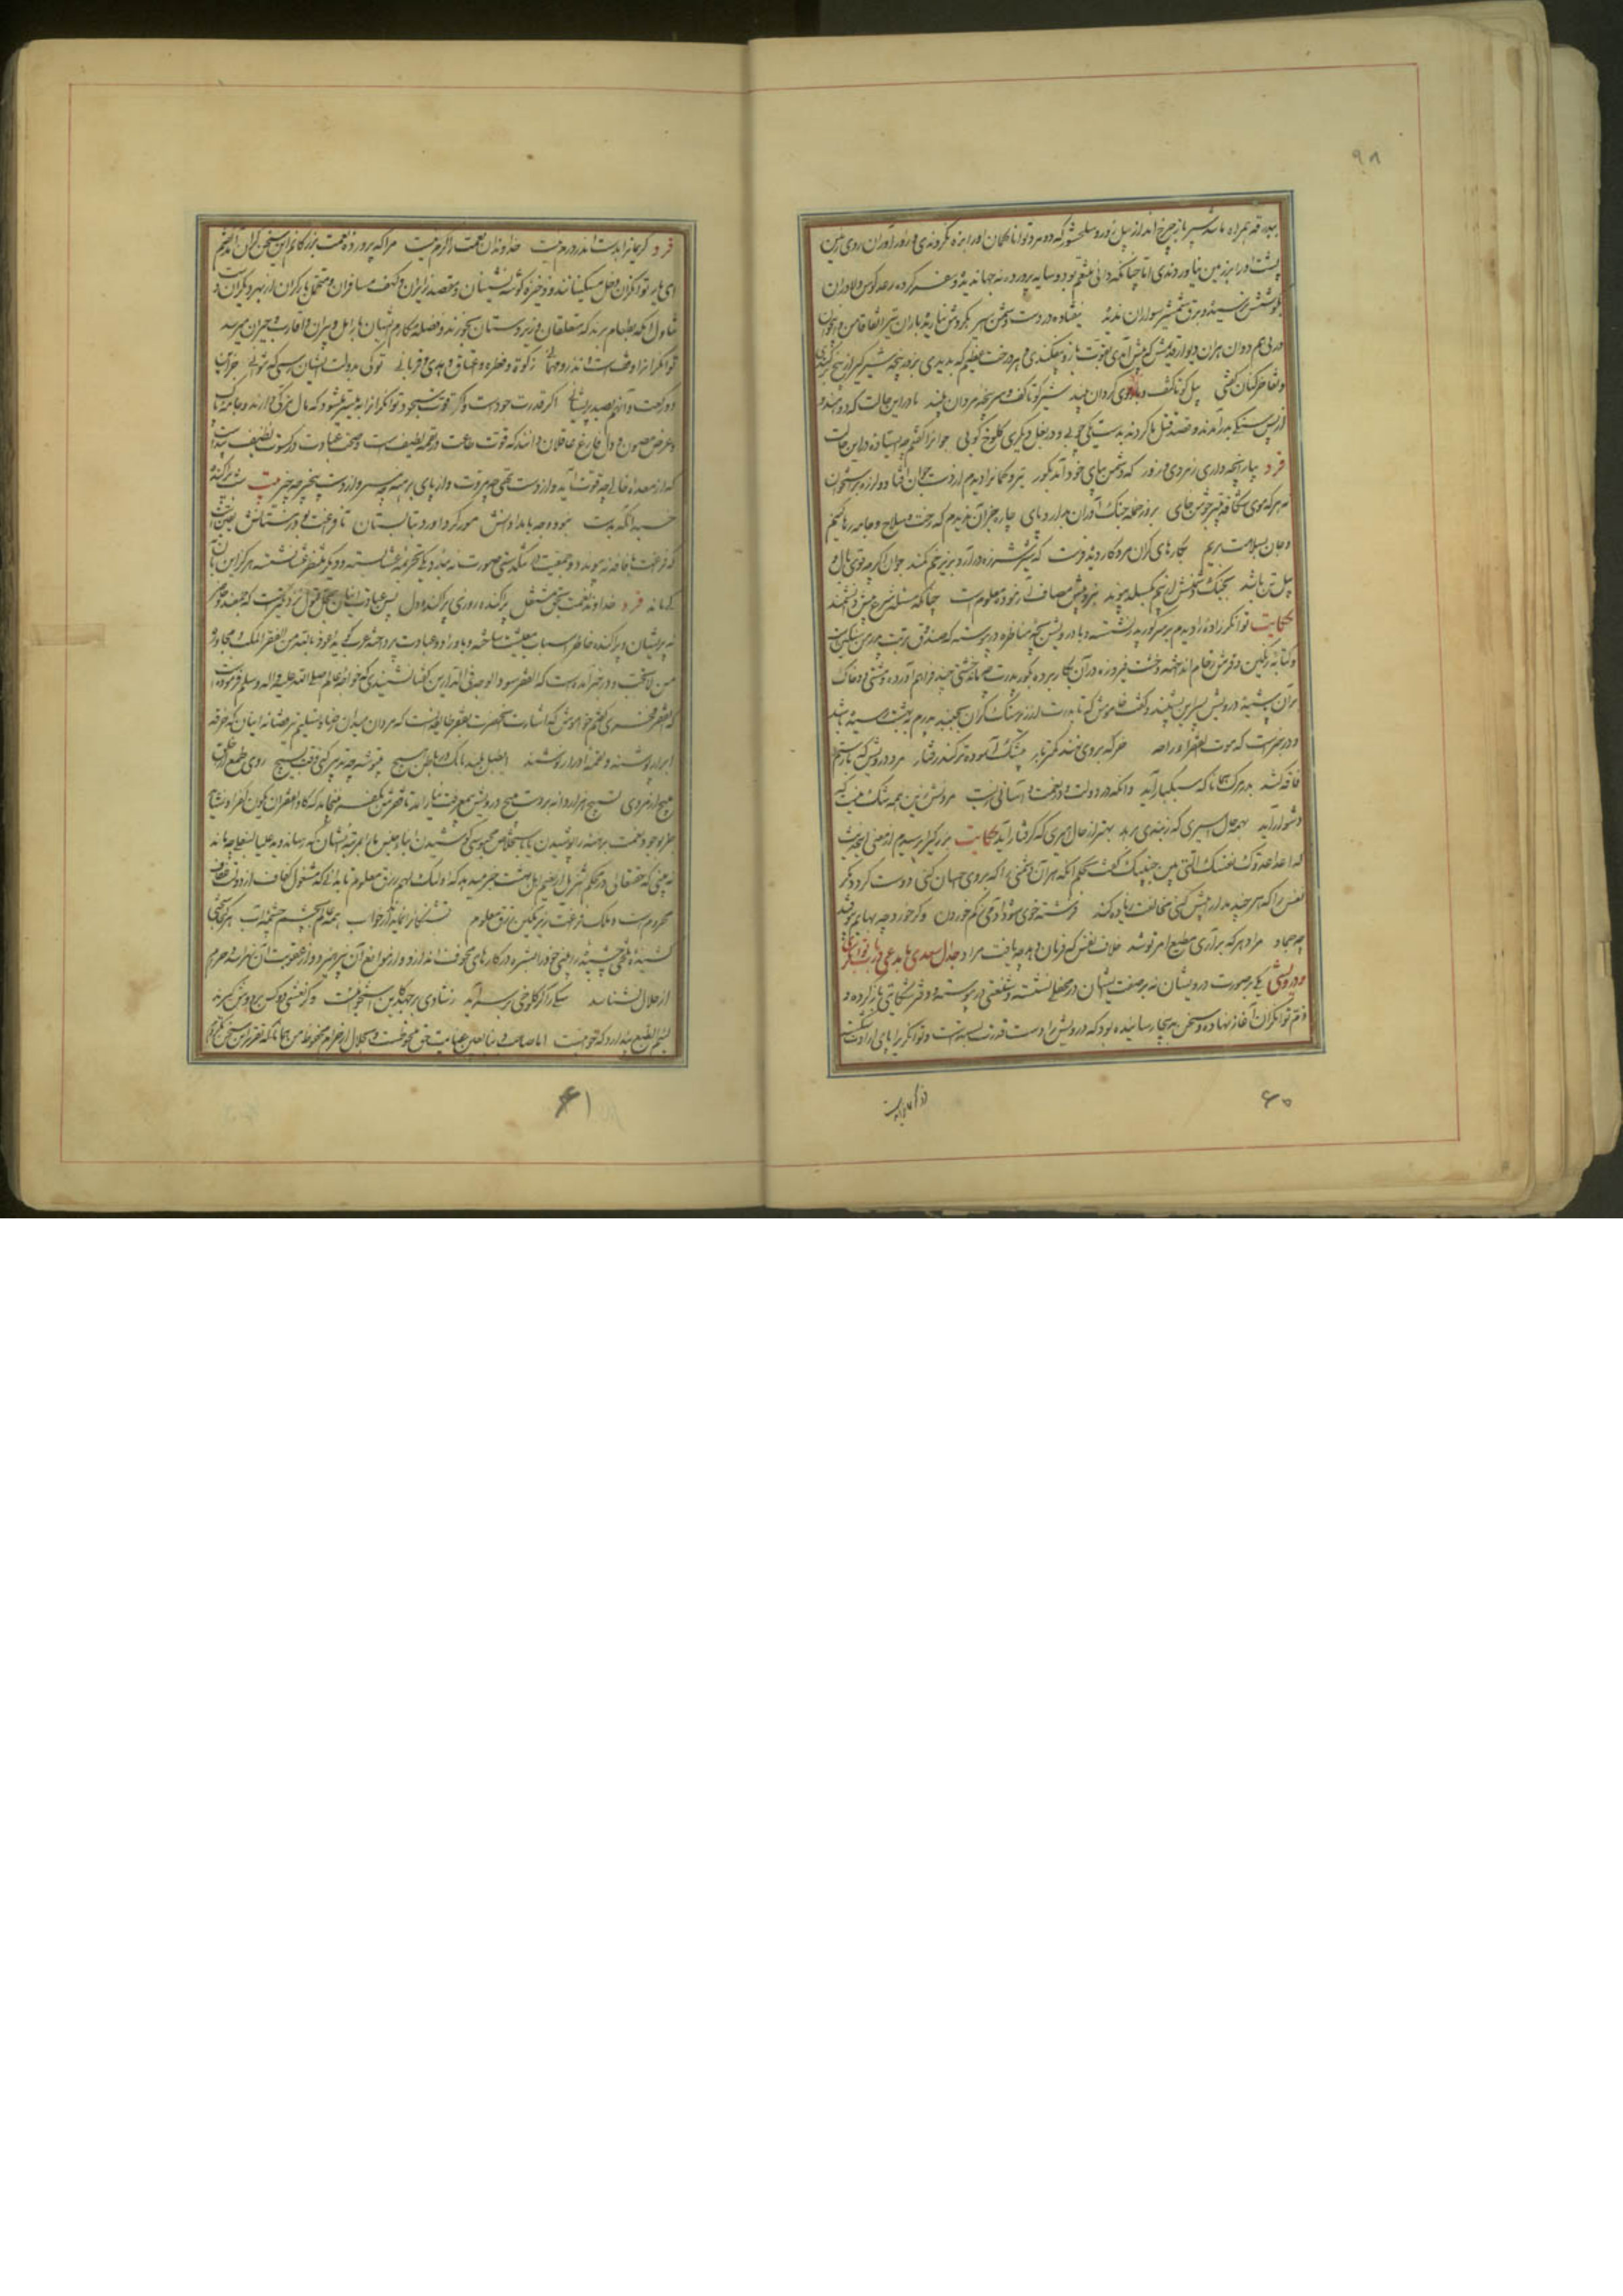 ۹۸
بدرقه همراه ما شد سپرباز چرخ انداز پیل زور و سلحشور که ده مرد توانا کمان او را بزه نکردندی و زورآوران روی زمین
پشت او را بر زمین نیاوردندی اما چنانکه دانی متنعم بود و سایه پرورده نه جهاندیده و سفر کرده رعد کوس دلاوران
بگوشش نرسیده و برق شمشیر سواران ندیده نیفتاده در دست دشمن اسیر بگردش نباریده باران تیر اتفاقا من و این جوان
در پی هم دوان هر آن دیوار قدیمش که پیش آمدی بقوت بازو بیفکندی و هر درخت عظیم که بدیدی بزور پنجه شیر گیر از بیخ برکندی
و تفاخر کنان گفتی پیل کو تا کتف و بازوی گردان بیند شیر کو تا کف و سرپنجه مردان بیند ما در این حالت که دو هندو
از پس سنگی بدر آمدند و قصد قتل ما کردند بدست یکی چوبی و در بغل دیگری کلوخ کوبی جوانرا گفتم چه ایستاده در این حالت
فرد بیار آنچه داری ز مردی و زور که دشمن بپای خود آمد بگور تیر و کمانرا دیدم از دست جوان افتاده و لرزه بر استخوان
نه هر که موی شکافد به تیر جوشن خای بروز حمله جنگ آوران بدارد پای چاره جز آن ندیدم که رخت و سلاح و جامه رها کنیم
و جان بسلامت بریم بکارهای گران مرد کار دیده فرست که شیر شرزه در آرد بزیر خم کمند جوان اگرچه قوی یال و
پیل تن باشد بجنگ دشمنش از بیم بگسلد پیوند نبرد پیش مصاف آزموده معلوم است چنانکه مسئله شرع پیش دانشمند
حکایت توانگر زاده را دیدم بر سر گور پدر نشسته و با درویش بچه مناظره در پیوسته که صندوق تربت پدرم سنگین است
و کتابه رنگین و فرش رخام انداخته و خشت فیروزه در آن بکار برده بگور پدرت چه ماند خشتی چند فراهم آورده و مشتی دو خاک
بر آن پاشیده درویش پسر این بشنید و گفت خاموش که تا پدرت از زیر سنگ گران بجنبد پدرم به بهشت رسیده باشد
و در خبرست که موت الفقرا راحه خر که بر وی نهند کمتر بار بیشک آسوده تر کند رفتار مرد درویش که بار ستم
فاقه کشد بدر مرگ همانا که سبکبار آید وانکه در دولت و در نعمت و آسانی زیست مردنش زین همه شک نیست که
دشوار آید بهمه حال اسیری که ز بندی برهد بهتر از حال امیری که گرفتار آید حکایت بزرگی را پرسیدم از معنی این حدیث
که اعدا عدوک نفسک التی بین جنبیک گفت بحکم آنکه هر آن دشمنی را که بروی احسان کنی دوست گردد مگر
نفس را که هر چند مدارا بیش کنی مخالفت زیاده کند فرشته خوی شود آدمی بکم خوردن و گر خورد چو بهایم بیوفتد
چو جماد مراد هر که برآری مطیع امر تو شد خلاف نفس که فرمان دهد چو یافت مراد جدال سعدی با مدعی در باب توانگری
و درویشی یکی در صورت درویشان نه بر صفت ایشان در محفلی نشسته و شنعتی در پیوسته و دفتر شکایتی باز کرده و
ذم توانگران آغاز نهاده و سخن بدینجا رسانیده بود که درویش را دست قدرت بسته است و توانگر را پای ارادت شکسته
۶۰
فرد کریمانرا بدست اندر درم نیست خداوندان نعمت را کرم نیست مرا که پرورده نعمت بزرگانم این سخن گران آمد گفتم
ای یار توانگران دخل مسکینانند و ذخیره گوشه نشینان و مقصد زایران و کهف مسافران و متحمل بار گران از بهر دگران دست
تناول آنکه بطعام برند که متعلقان و زیردستان بخورند و فضله مکارم ایشان بارامل و پیران و اقارب و جیران میرسد
توانگرانرا وقفست و نذر و مهمانی زکوة و فطره و اعتاق و هدی و قربانی تو کی بدولت ایشان رسی که نتوانی جز این
دو رکعت و آنهم بصد پریشانی اگر قدرت جودست و گر قوت سجود توانگرانرا به میسر میشود که مال مزکی دارند و جامه پاک
و عرض مصون و دل فارغ عاقلان دانند که قوت طاعت در لقمه لطیف است و صحت عبادت در کسوت نظیف پیداست
که از معده خالی چه قوت آید و از دست تهی چه مروت و از پای برهنه چه سیر و از دست پنجه چه خیر بیت شب پراکنده
خسبد آنکه پدید نبود وجه بامدادانش مور گرد آورد بتابستان تا فراغت بود زمستانش یقین است
که فراغت با فاقه نه پیوندد و جمعیت در تنگدستی صورت نه بندد یکی تحریمه عشا بسته و دیگر منتظر عشا نشسته هرگز این بآن
کی ماند فرد خداوند نعمت بحق مشتغل پراکنده روزی پراکنده دل پس عبادت اینان بمحل قبول نزدیکترست که جمعند و حاضر
نه پریشان و پراکنده خاطر اسباب معیشت ساخته و باوراد و عبادت پرداخته عرب گوید اعوذ بالله من الفقر المکب و مجاورة
من لا یحب و در خبر آمده است که الفقر سواد الوجه فی الدارین گفتا نشنیدی که خواجه عالم صلی الله علیه و اله و سلم فرموده است
که الفقر فخری گفتم خواموش که اشارت آنحضرت بفقر طایفه ایست که مردان میدان رضا و تسلیم تیر قضا نه اینان که خرقه
ابرار پوشند و لقمه ادرار نوشند ای طبل بلند بانگ در باطن هیچ بیتوشه چه تدبیر کنی وقت بسیج روی طمع از خلق
بپیچ ار مردی تسبیح هزار دانه بر دست مپیچ درویش بمعرفت نیاراید تا فقرش بکفر نینجامد که کاد الفقر ان یکون کفرا و نشاید
جز بوجود نعمت برهنه را پوشیدن یا باستخلاص محبوسی کوشیدن ابنای جنس ما را بمرتبه ایشان که رساند و ید علیا بسفلی چه ماند
نه بینی که حقتعالی در محکم تنزیل از نعیم اهل بهشت خبر میدهد که اولئک لهم رزق معلوم تا بدانی که مشغول کفاف از دولت عفاف
محرومست و ملک فراغت زیر نگین رزق معلوم تشنگانرا نماید اندر خواب همه عالم بچشم چشمه آب هر کجا سختی
کشیده و تلخی چشیده را بینی خود را بشره در کارهای مخوف اندازد و از توابع آن نپرهیزد و از عقوبت آن نهراسد و حرام
از حلال نشناسد سگی را گر کلوخی بر سر آید ز شادی بر جهد کاین استخوانیست و گر نعشی دو کس بر دوش گیرند
لئیم الطبع پندارد که خوانیست اما صاحب دنیا بعین عنایت حق ملحوظست و بحلال از حرام محفوظ من همانا که تقریر این سخن نکردم
۶۱